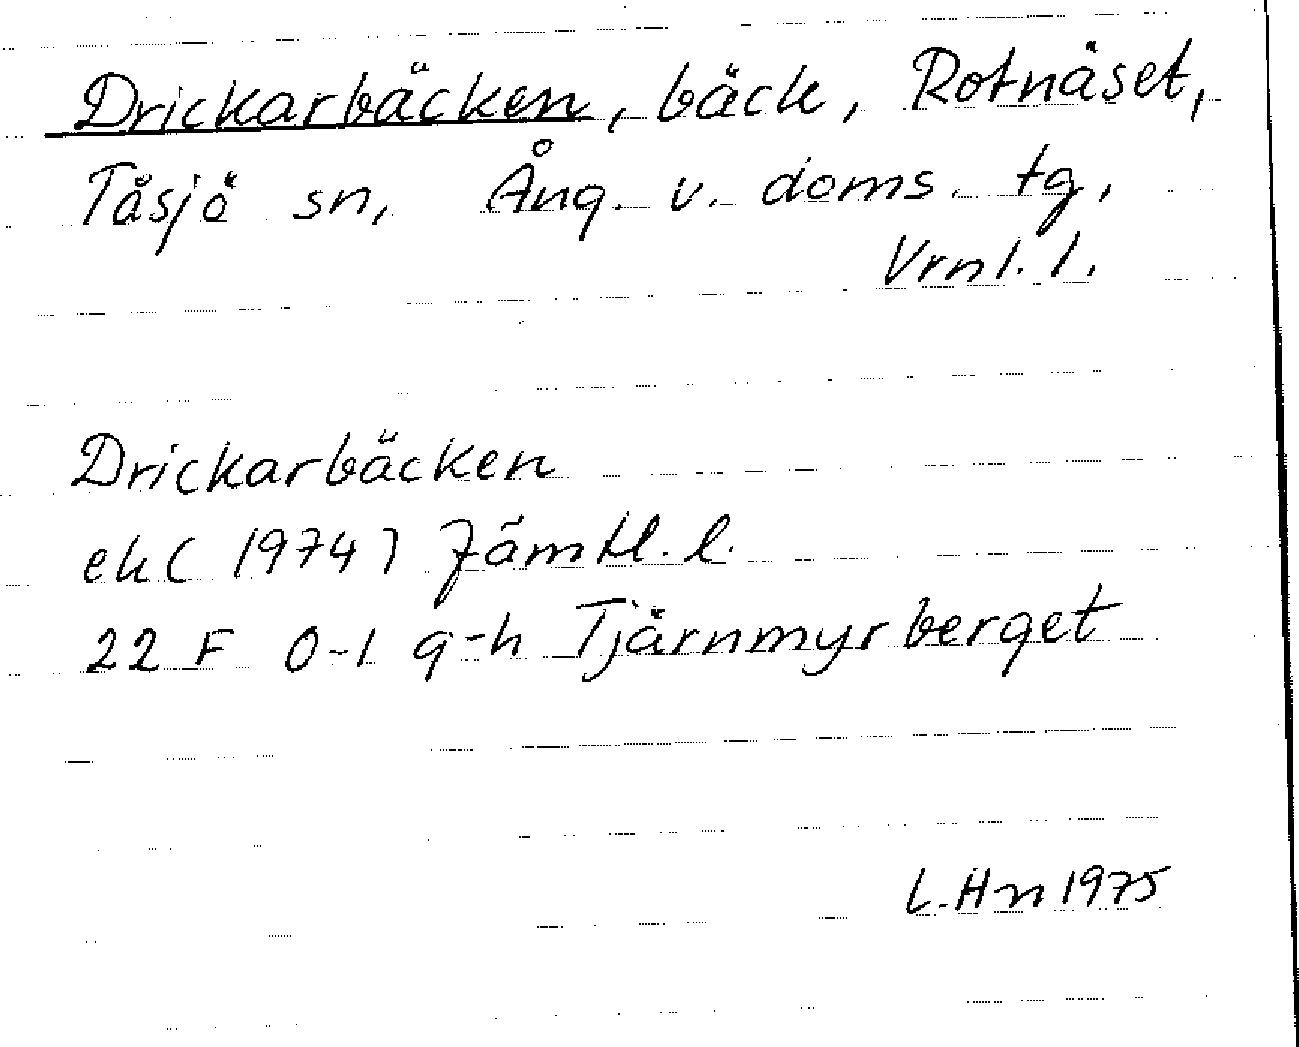 Drickarbäcken, bäck, Rotnäset,
Tåsjö sn, Ång. v. doms. tg,
Vrnl. l.
Drickarbäcken
ek (1974) Jämtl. l.
22 F 0-1 g-h Tjärnmyrberget
L. Hn 1975